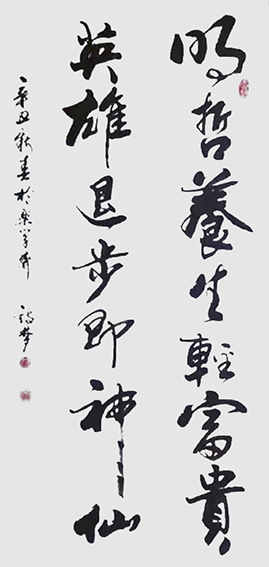 明哲養生輕富貴
英雄退步即神仙
辛丑新春於樂